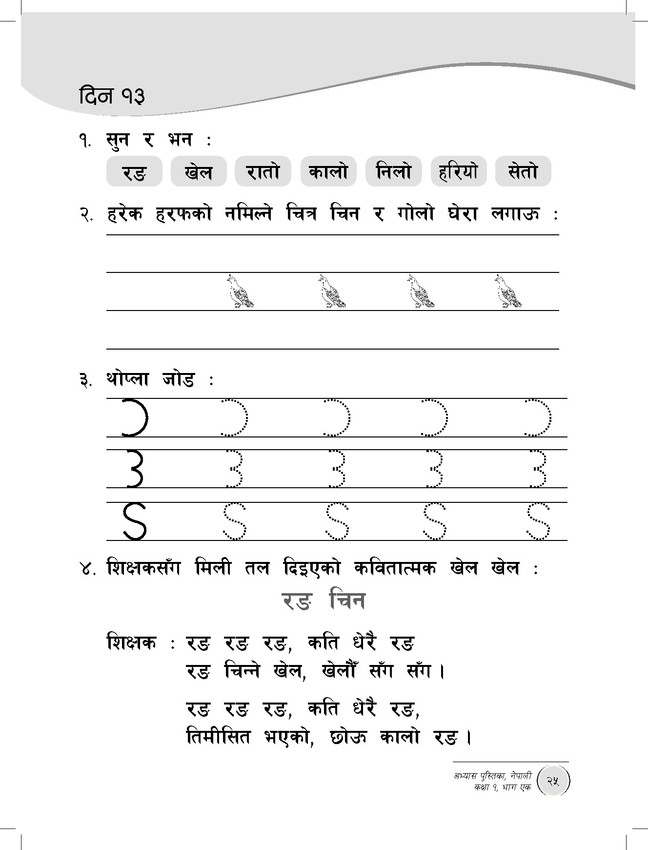 दिन १३
१. सुन र भन :
रङ खेल रातो कालो निलो हरियो सेतो
२. हरेक हरफको नमिल्ने चित्र चिन र गोलो घेरा लगाऊ :
३. थोप्ला जोड :
४. शिक्षकसँग मिली तल दिइएको कवितात्मक खेल खेल :
रङ चिन
शिक्षक : रङ रङ रङ, कति धेरै रङ
रङ चिन्ने खेल, खेलौँ सँग सँग ।
रङ रङ रङ, कति धेरै रङ,
तिमीसित भएको, छोऊ कालो रङ ।
अभ्यास पुस्तिका, नेपाली
कक्षा १, भाग एक
२५